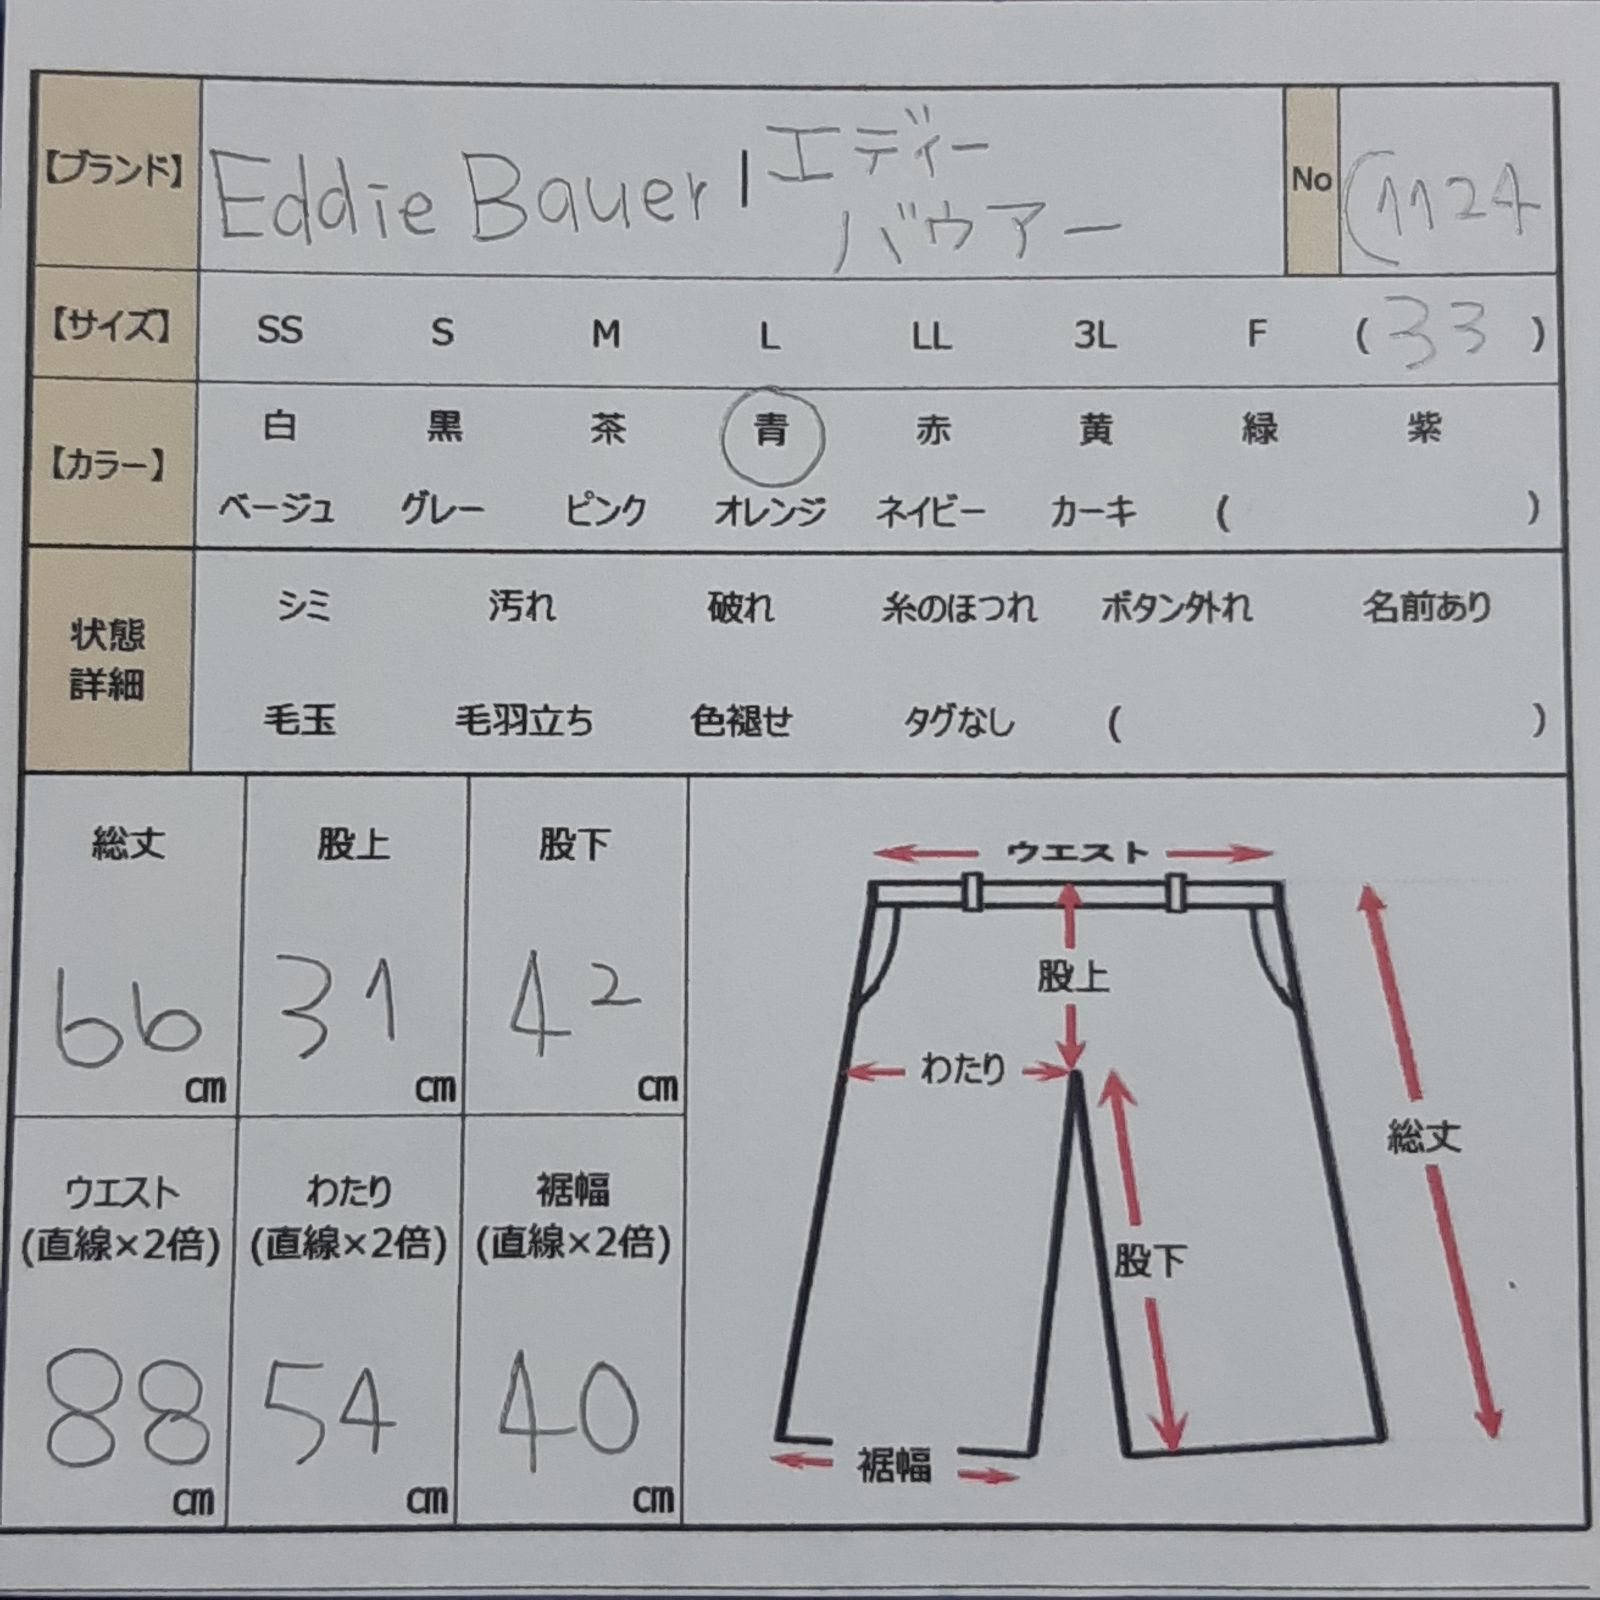 【ブランド】 Eddie Bauer | エディー
バウアー
No (1124
【サイズ】 SS S M L LL 3L F ( 33 )
【カラー】 白 黒 茶 青 赤 黄 緑 紫
ベージュ グレー ピンク オレンジ ネイビー カーキ ( )
状態
詳細
シミ 汚れ 破れ 糸のほつれ ボタン外れ 名前あり
毛玉 毛羽立ち 色褪せ タグなし ( )
総丈 股上 股下
66 cm 31 cm 42 cm
ウエスト わたり 裾幅
(直線×2倍) (直線×2倍) (直線×2倍)
88 cm 54 cm 40 cm
ウエスト
股上
わたり
総丈
股下
裾幅